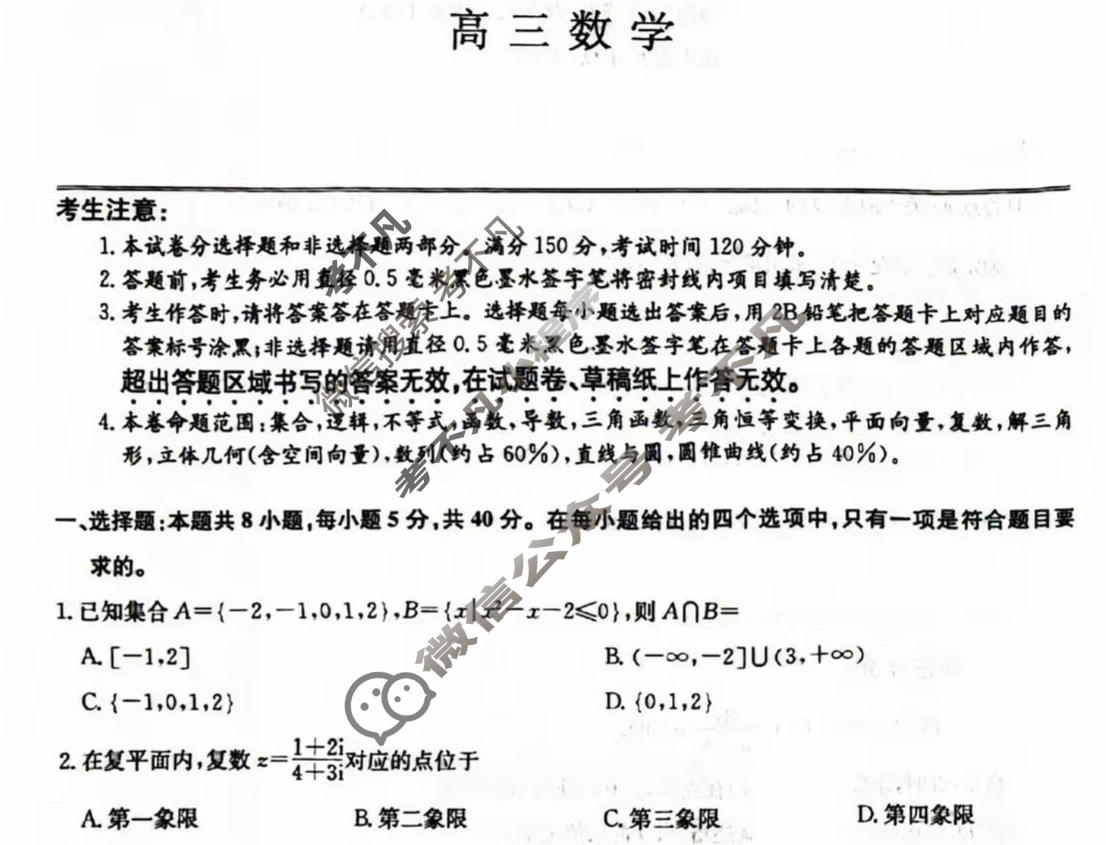 高三数学
考生注意:
1.本试卷分选择题和非选择题两部分。满分150分,考试时间120分钟.
2.答题前,考生务必用直径0.5毫米黑色墨水签字笔将密封线内项目填写清楚。
3.考生作答时,请将答案答在答题卡上。选择题每小题选出答案后,用2B铅笔把答题卡上对应题目的
答案标号涂黑;非选择题请用直径0.5毫米黑色墨水签字笔在答题卡上各题的答题区域内作答,
超出答题区域书写的答案无效,在试题卷、草稿纸上作答无效。
4.本卷命题范围:集合,逻辑,不等式,函数,导数,三角函数,三角恒等变换,平面向量,复数,解三角
形,立体几何(含空间向量),数列(约占60%),直线与圆,圆锥曲线(约占40%)。
一、选择题:本题共8小题,每小题5分,共40分。在每小题给出的四个选项中,只有一项是符合题目要
求的。
1.已知集合A={-2,-1,0,1,2},B={x|x²-x-2≤0},则A∩B=
A.[-1,2] B.(-∞,-2]∪(3,+∞)
C.{-1,0,1,2} D.{0,1,2}
2.在复平面内,复数z=(1+2i)/(4+3i)对应的点位于
A.第一象限 B.第二象限 C.第三象限 D.第四象限
微信搜索 考不凡
考不凡
考不凡
微信公众号 考不凡